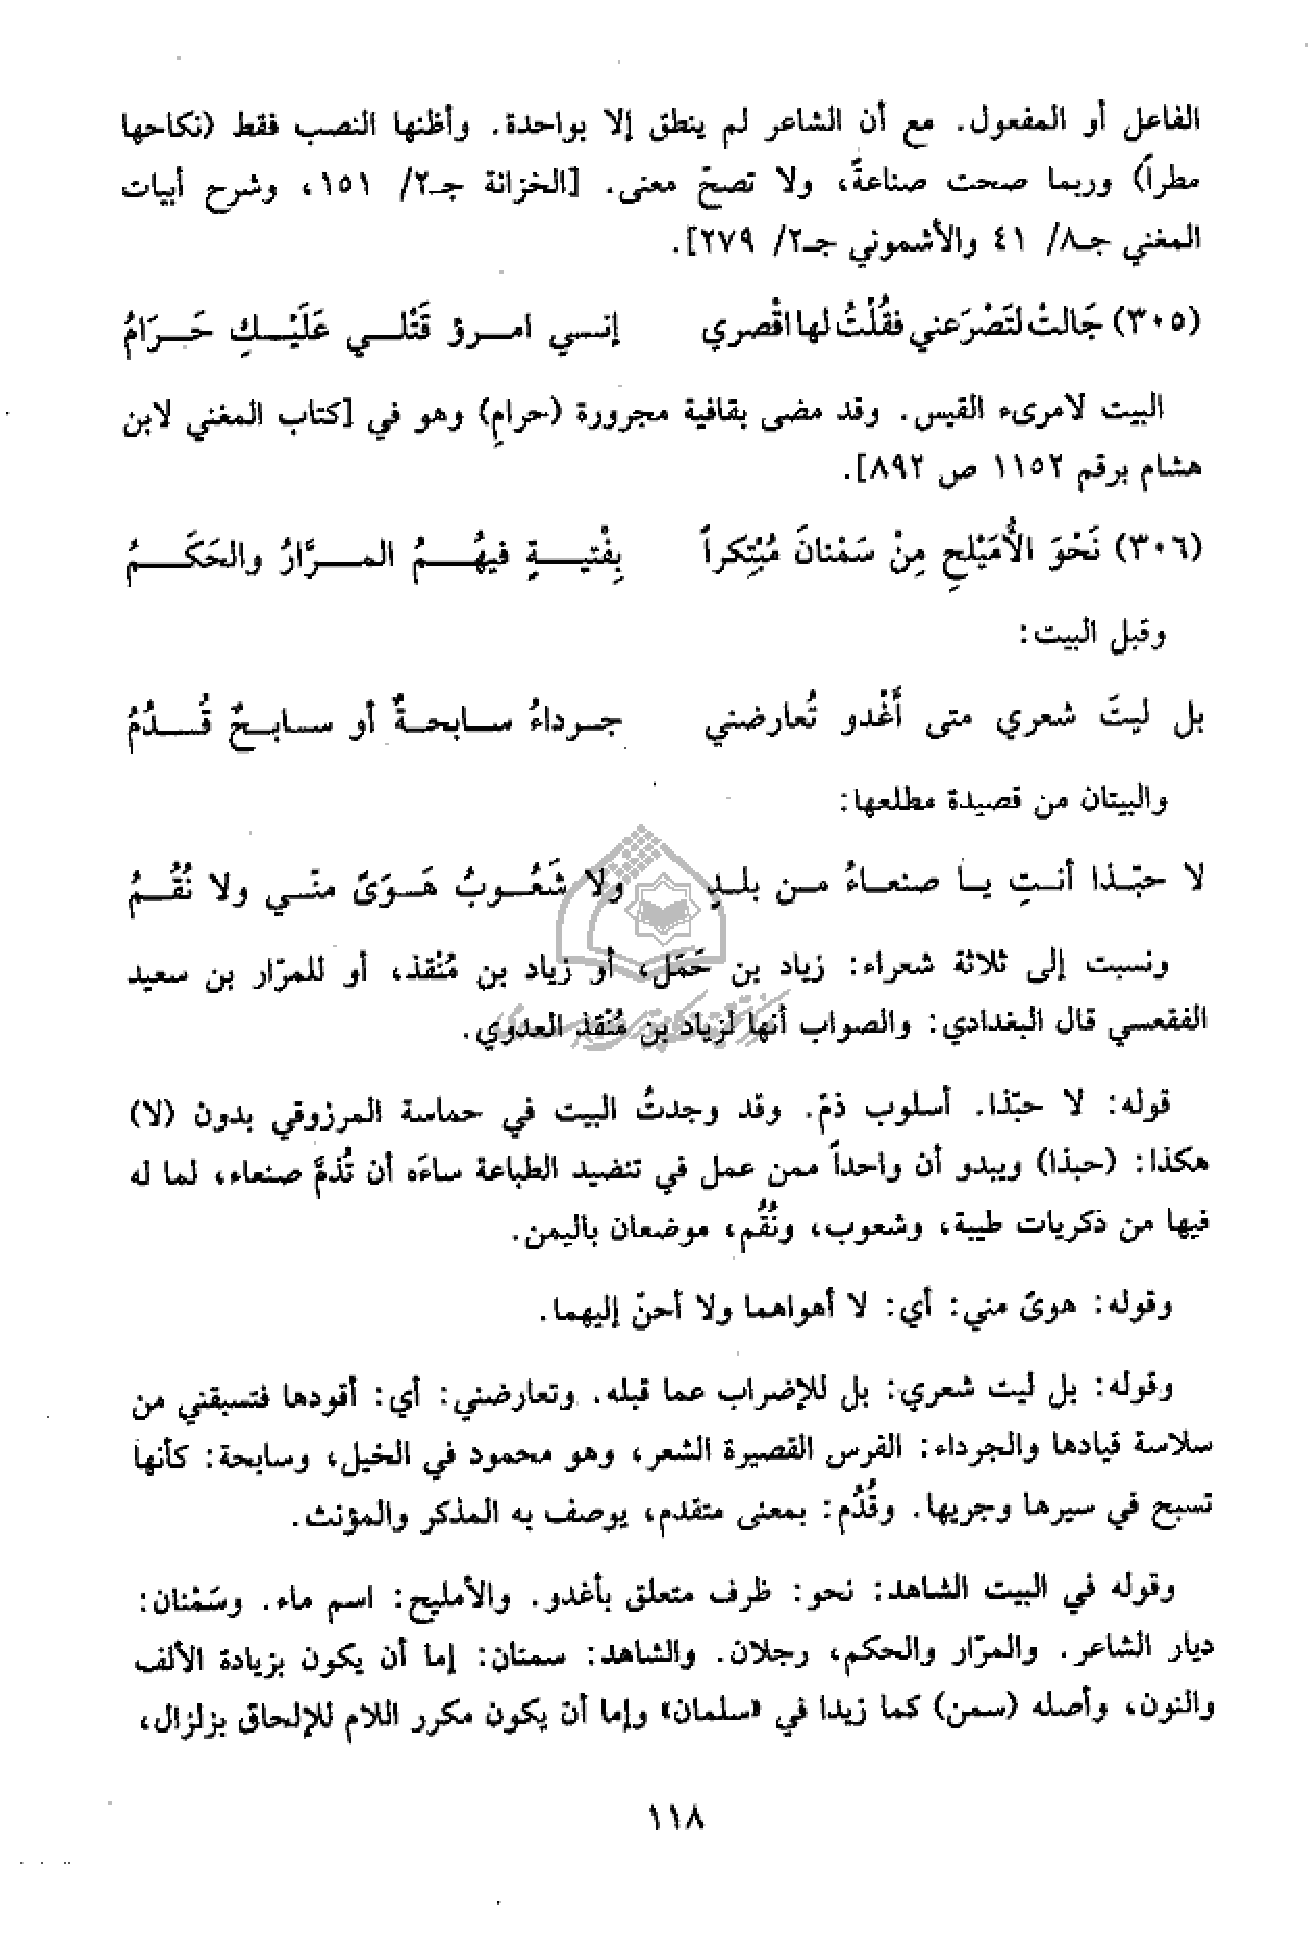 الفاعل أو المفعول. مع أن الشاعر لم ينطق إلا بواحدة. وأظنها النصب فقط (نكاحها
مطراً) وربما صحت صناعةً، ولا تصحّ معنى. [الخزانة جـ٢/ ١٥١، وشرح أبيات
المغني جـ٨/ ٤١ والأشموني جـ٢/ ٢٧٩].
(٣٠٥) جَالتْ لتَصْرَعني فقُلْتُ لها اقْصري إنـسي امـرؤ قَتْلـي عَلَيْـكِ حَـرَامُ
البيت لامرىء القيس. وقد مضى بقافية مجرورة (حرامِ) وهو في [كتاب المغني لابن
هشام برقم ١١٥٢ ص ٨٩٢].
(٣٠٦) نَحْوَ الأُمَيْلحِ مِنْ سَمْنانَ مُبْتِكراً بِفْتيـةٍ فيهُـمُ المـرَّارُ والحَكَـمُ
وقبل البيت:
بل ليتَ شعري متى أَغْدو تُعارضني جـرداءُ سـابحـةٌ أو سـابـحٌ قُـدُمُ
والبيتان من قصيدة مطلعها:
لا حبّـذا أنـتِ يـا صنعـاءُ مـن بلـدٍ ولا شَعُـوبُ هَـوَىً منّـي ولا نُقُـمُ
ونسبت إلى ثلاثة شعراء: زياد بن حَمَل، أو زياد بن مُنْقذ، أو للمرّار بن سعيد
الفقعسي قال البغدادي: والصواب أنها لزياد بن مُنْقذ العدوي.
قوله: لا حبّذا. أسلوب ذمّ. وقد وجدتُ البيت في حماسة المرزوقي بدون (لا)
هكذا: (حبذا) ويبدو أن واحداً ممن عمل في تنضيد الطباعة ساءَه أن تُذمَّ صنعاء، لما له
فيها من ذكريات طيبة، وشعوب، ونُقُم، موضعان باليمن.
وقوله: هوىً مني: أي: لا أهواهما ولا أحنّ إليهما.
وقوله: بل ليت شعري: بل للإضراب عما قبله. وتعارضني: أي: أقودها فتسبقني من
سلاسة قيادها والجرداء: الفرس القصيرة الشعر، وهو محمود في الخيل، وسابحة: كأنها
تسبح في سيرها وجريها. وقُدُم: بمعنى متقدم، يوصف به المذكر والمؤنث.
وقوله في البيت الشاهد: نحو: ظرف متعلق بأغدو. والأمليح: اسم ماء. وسَمْنان:
ديار الشاعر. والمرّار والحكم، رجلان. والشاهد: سمنان: إما أن يكون بزيادة الألف
والنون، وأصله (سمن) كما زيدا في «سلمان» وإما أن يكون مكرر اللام للإلحاق بزلزال،
١١٨